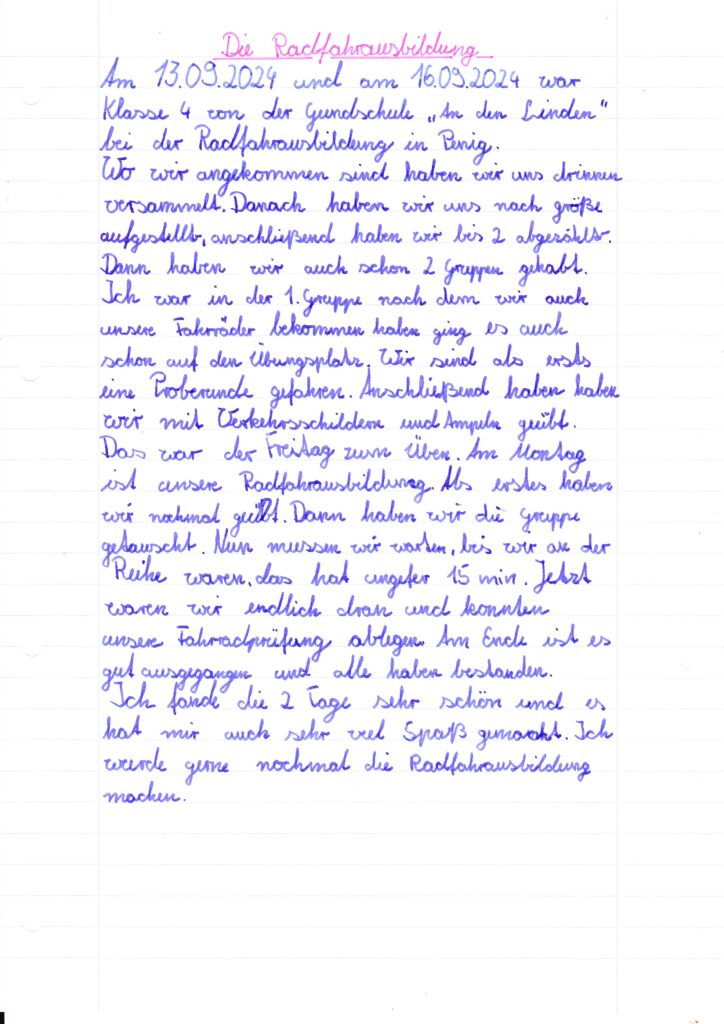 Die Radfahrausbildung
Am 13.09.2024 und am 16.09.2024 war
Klasse 4 von der Gundschule „An den Linden"
bei der Radfahrausbildung in Penig.
Wo wir angekommen sind haben wir uns drinnen
versammelt. Danach haben wir uns nach größe
aufgestellt, anschließend haben wir bis 2 abgezählt.
Dann haben wir auch schon 2 Gruppen gehabt.
Ich war in der 1. Gruppe nach dem wir auch
unsere Fahrräder bekommen haben ging es auch
schon auf den Übungsplatz. Wir sind als ersts
eine Proberunde gefahren. Anschließend haben haben
wir mit Verkehrsschildern und Ampeln geübt.
Das war der Freitag zum Üben. Am Montag
ist unsere Radfahrausbildung. Als erstes haben
wir nochmal geübt. Dann haben wir die Gruppe
getauscht. Nun mussen wir warten, bis wir an der
Reihe waren, das hat ungefer 15 min. Jetzt
waren wir endlich dran und konnten
unsere Fahrradprüfung ablegen. Am Ende ist es
gut ausgegangen und alle haben bestanden.
Ich fande die 2 Tage sehr schön und es
hat mir auch sehr viel Spaß gemacht. Ich
wurde gerne nochmal die Radfahrausbildung
machen.